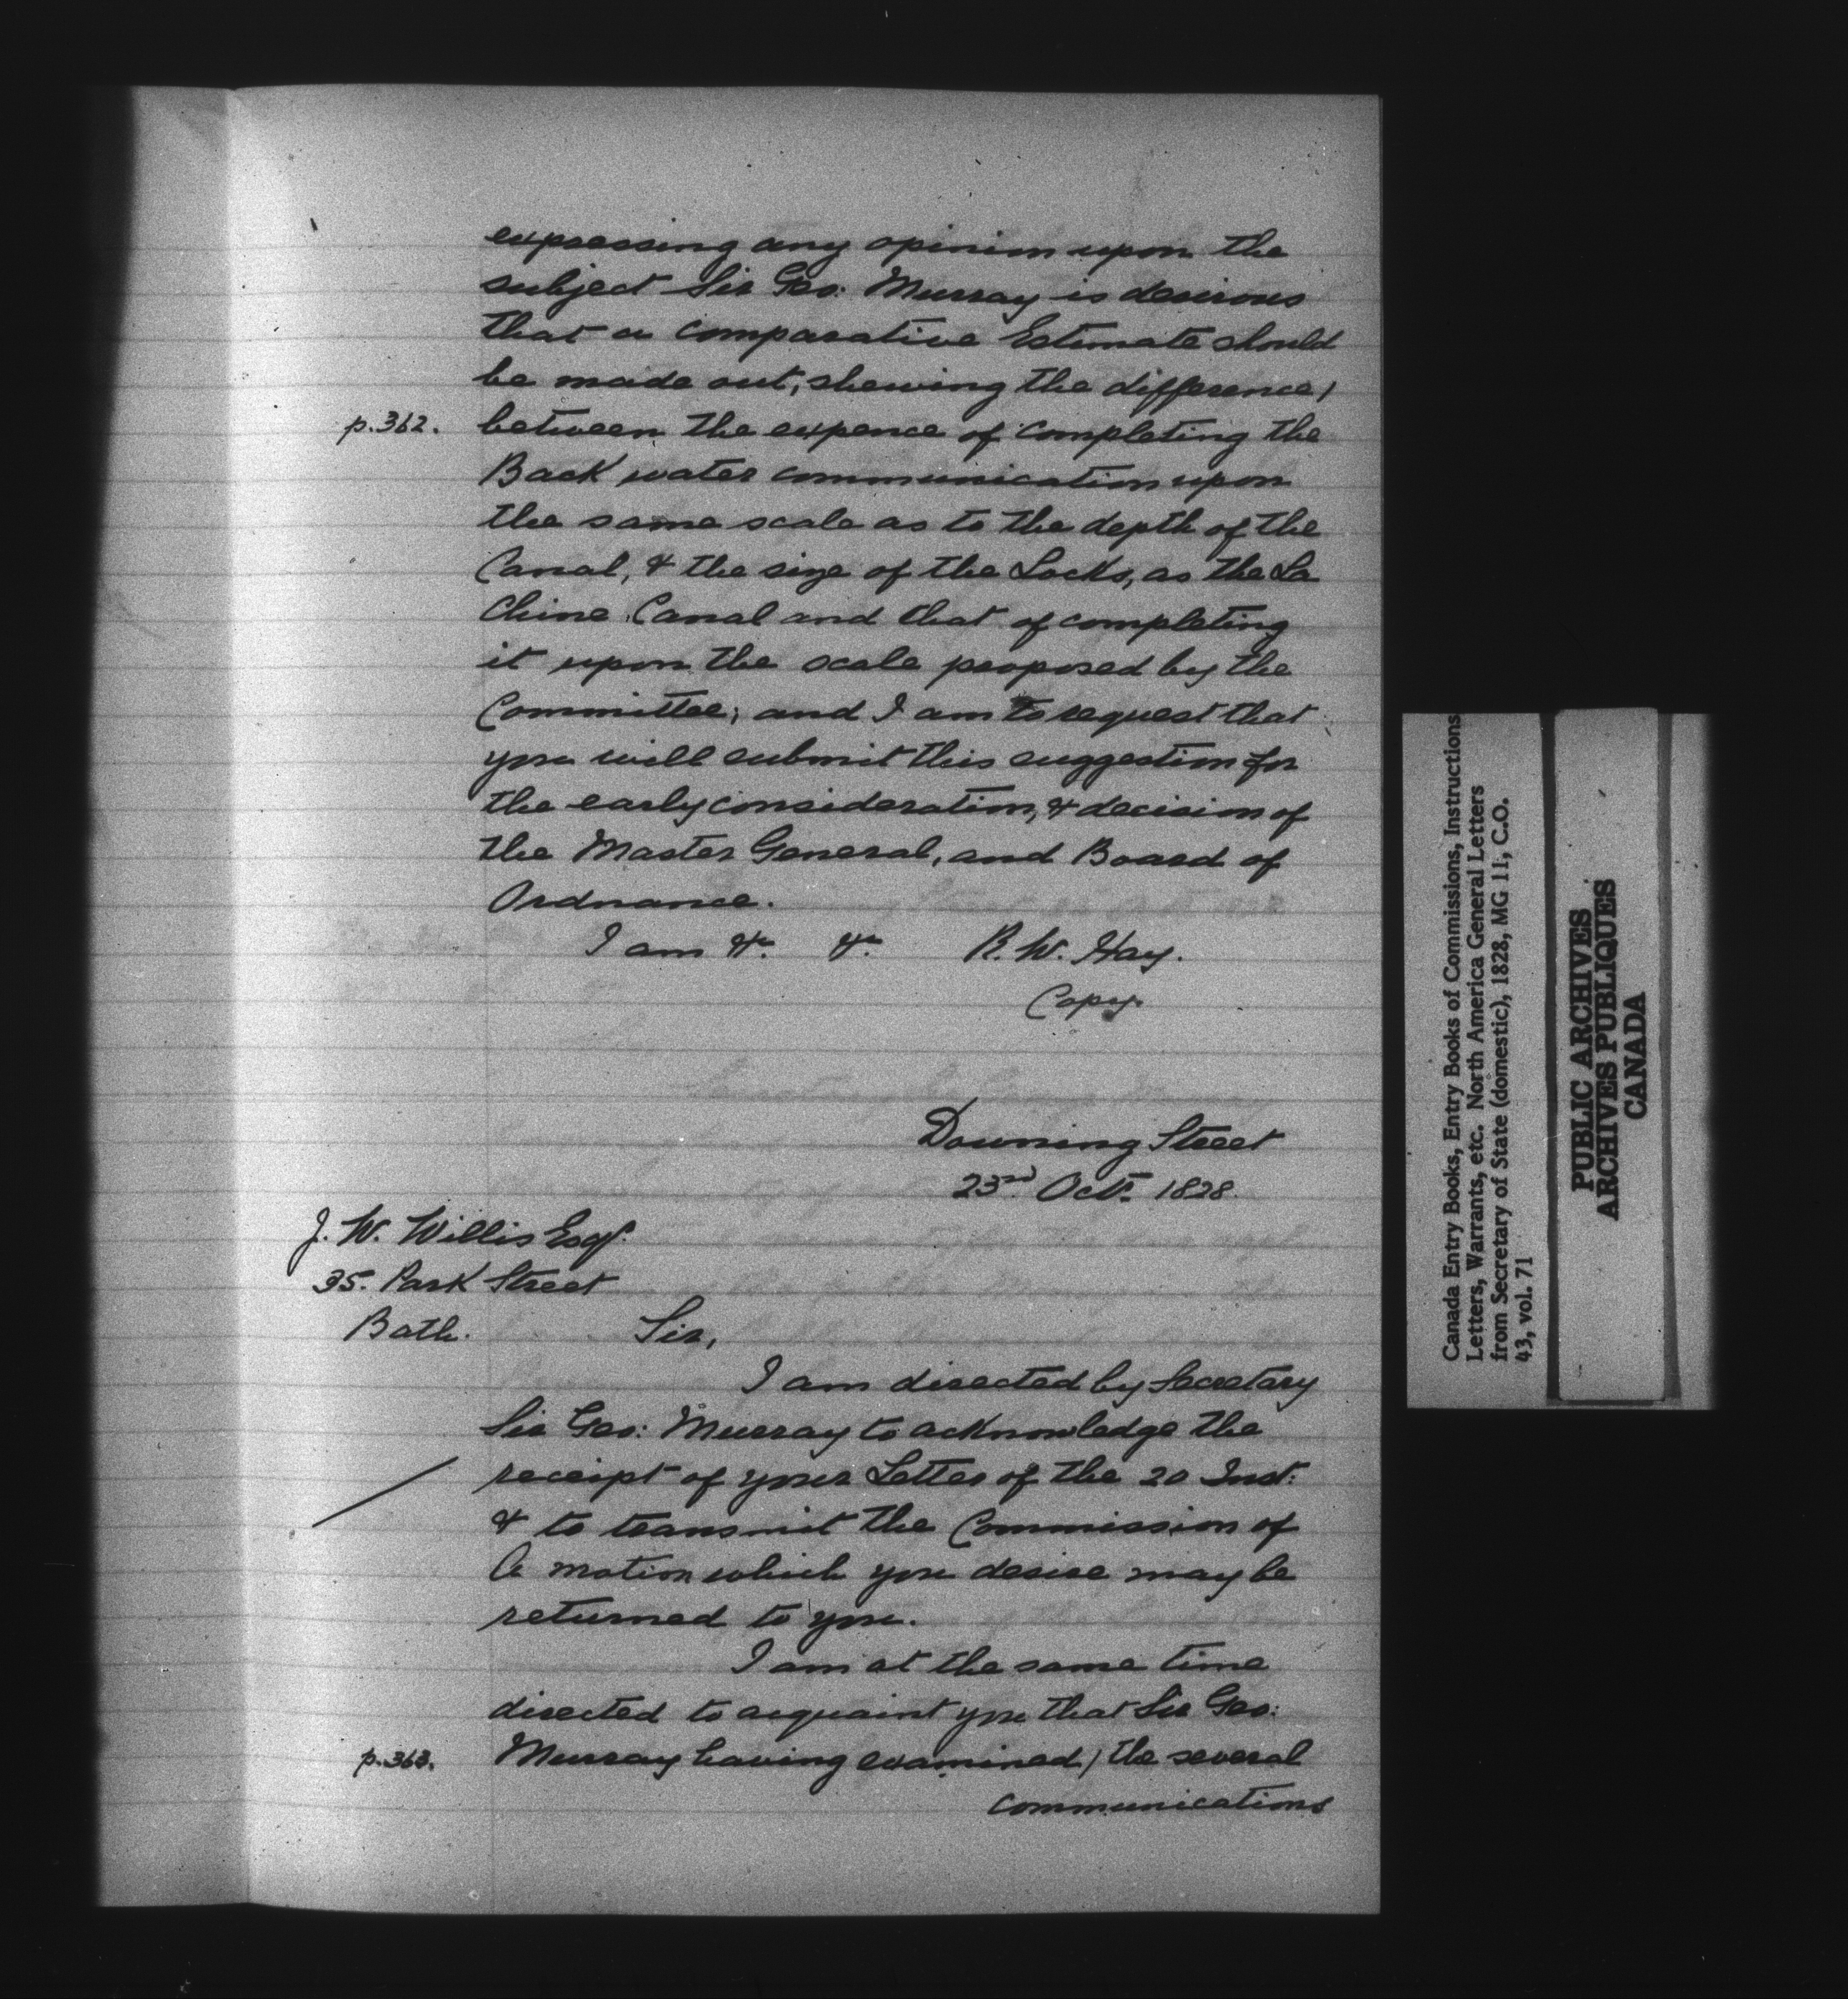 expressing any opinion upon the
subject Sir Geo: Murray is desirous
that a comparative Estimate should
be made out, shewing the difference /
p.362. between the expence of completing the
Back water communication upon
the same scale as to the depth of the
Canal, & the size of the Locks, as the La
Chine Canal and that of completing
it upon the scale proposed by the
Committee; and I am to request that
you will submit this suggestion for
the early consideration, & decision of
the Master General, and Board of
Ordnance.
I am &c. &c. R. W. Hay.
Copy.
Downing Street
23rd Octr. 1828
J. W. Willis Esqr.
35. Park Street
Bath. Sir,
I am directed by Secretary
Sir Geo: Murray to acknowledge the
receipt of your Letter of the 20 Inst:
& to transmit the Commission of
A motion which you desire may be
returned to you.
I am at the same time
directed to acquaint you that Sir Geo:
p.363. Murray having examined / the several
communications
Canada Entry Books, Entry Books of Commissions, Instructions
Letters, Warrants, etc. North America General Letters
from Secretary of State (domestic), 1828, MG 11, C.O.
43, vol. 71
PUBLIC ARCHIVES
ARCHIVES PUBLIQUES
CANADA